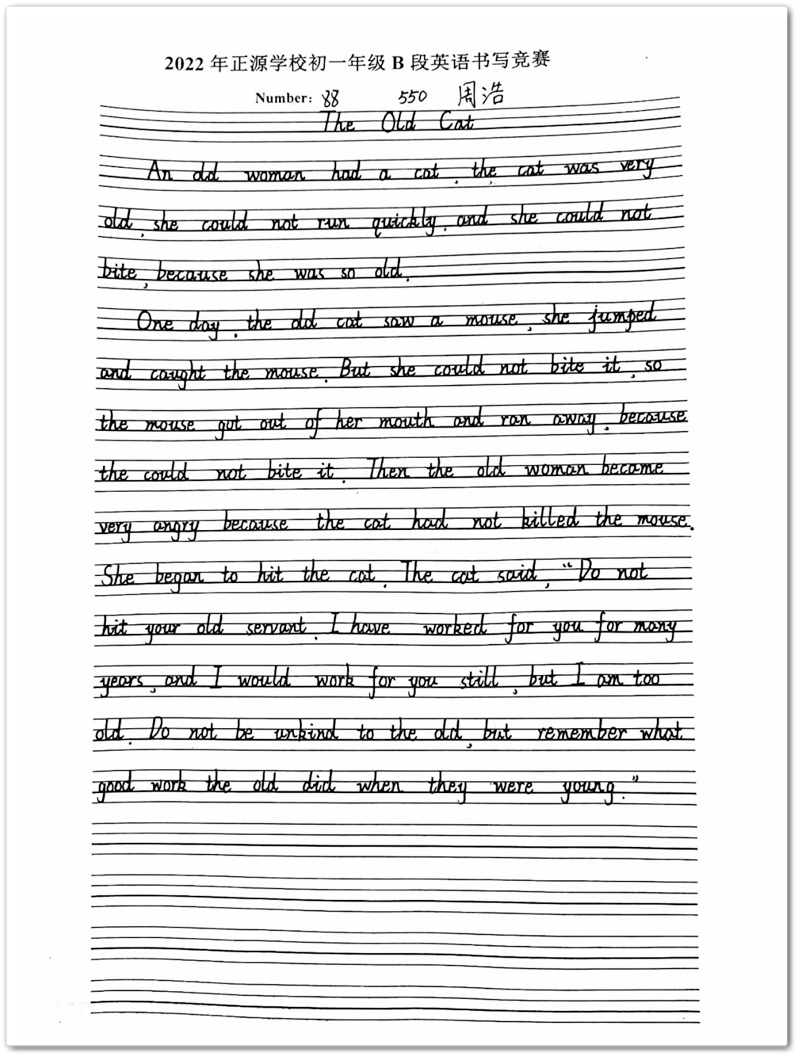 2022 年正源学校初一年级 B 段英语书写竞赛
Number: 88 550 周浩
The Old Cat
An old woman had a cat. the cat was very
old, she could not run quickly, and she could not
bite, because she was so old.
One day, the old cat saw a mouse, she jumped
and caught the mouse. But she could not bite it, so
the mouse got out of her mouth and ran away, because
the could not bite it. Then the old woman became
very angry because the cat had not killed the mouse.
She began to hit the cat. The cat said, “Do not
hit your old servant. I have worked for you for many
years, and I would work for you still, but I am too
old. Do not be unkind to the old, but remember what
good work the old did when they were young.”